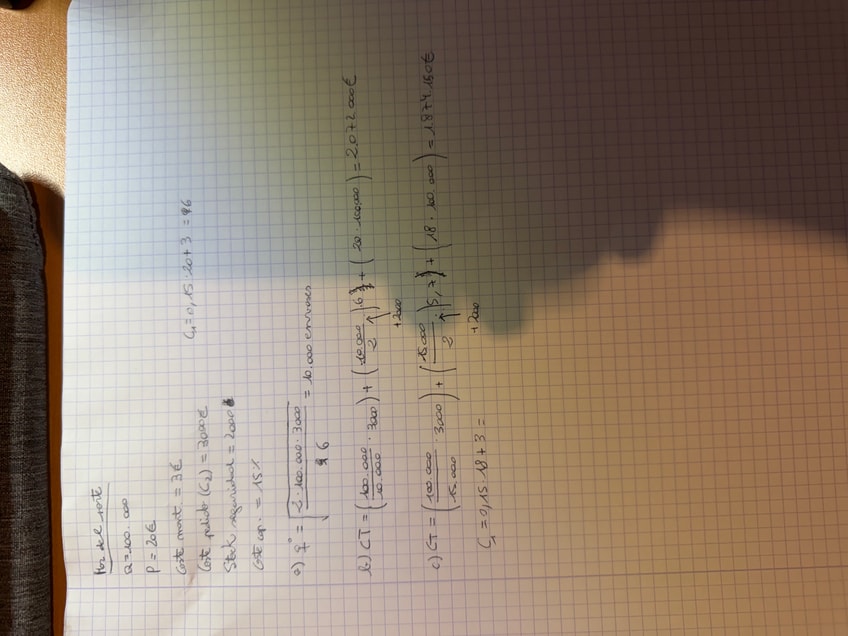 Mar del norte
Q = 100.000
P = 20€
Coste mante = 3€
Coste pedido (C2) = 3000€
Stock seguridad = 2000
Coste op. = 15%
C1 = 0,15 · 20 + 3 = 6
a) q° = √ 2 · 100.000 · 3000 / 6 = 10.000 envases
b) CT = ( 100.000 / 10.000 · 3000 ) + ( 10.000 / 2 ) 6 + ( 20 · 100.000 ) = 2.072.000€
+2000
c) CT = ( 100.000 / 15.000 · 3000 ) + ( 15.000 / 2 · ) 5,7 + ( 18 · 100.000 ) = 1.874.150€
+2000
C1 = 0,15 · 18 + 3 =